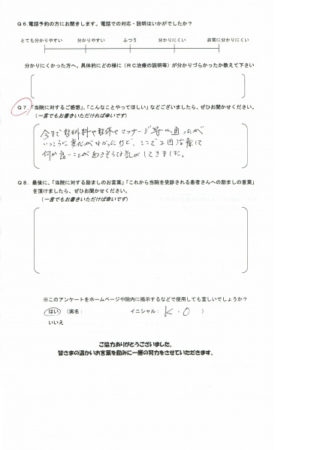 Q6 電話予約の方にお聞きします。電話での対応・説明はいかがでしたか?
とても分かりやすい 分かりやすい ふつう 分かりにくい 非常に分かりにくい
分かりにくかった方へ、具体的にどの様に(RC治療の説明等)が分かりづらかったか教えて下さい
Q7 「当院に対するご感想」、「こんなことやってほしい」などございましたら、ぜひお聞かせください。
(一言でもお書きいただければ幸いです)
今まで整形外科や整体やマッサージ等に通ったが
いっこうに
ここで2回治療して
何か良いことが起きそうな気がしてきました。
Q8 最後に、「当院に対する励ましのお言葉」「これから当院を受診される患者さんへの励ましの言葉」
を頂けましたら、ぜひお聞かせください。
(一言でもお書きいただければ幸いです)
※このアンケートをホームページや院内に掲示するなどで使用しても宜しいでしょうか?
はい (実名: イニシャル: K.O )
いいえ
ご協力ありがとうございました。
皆さまの温かいお言葉を励みに一層の努力をさせていただきます。